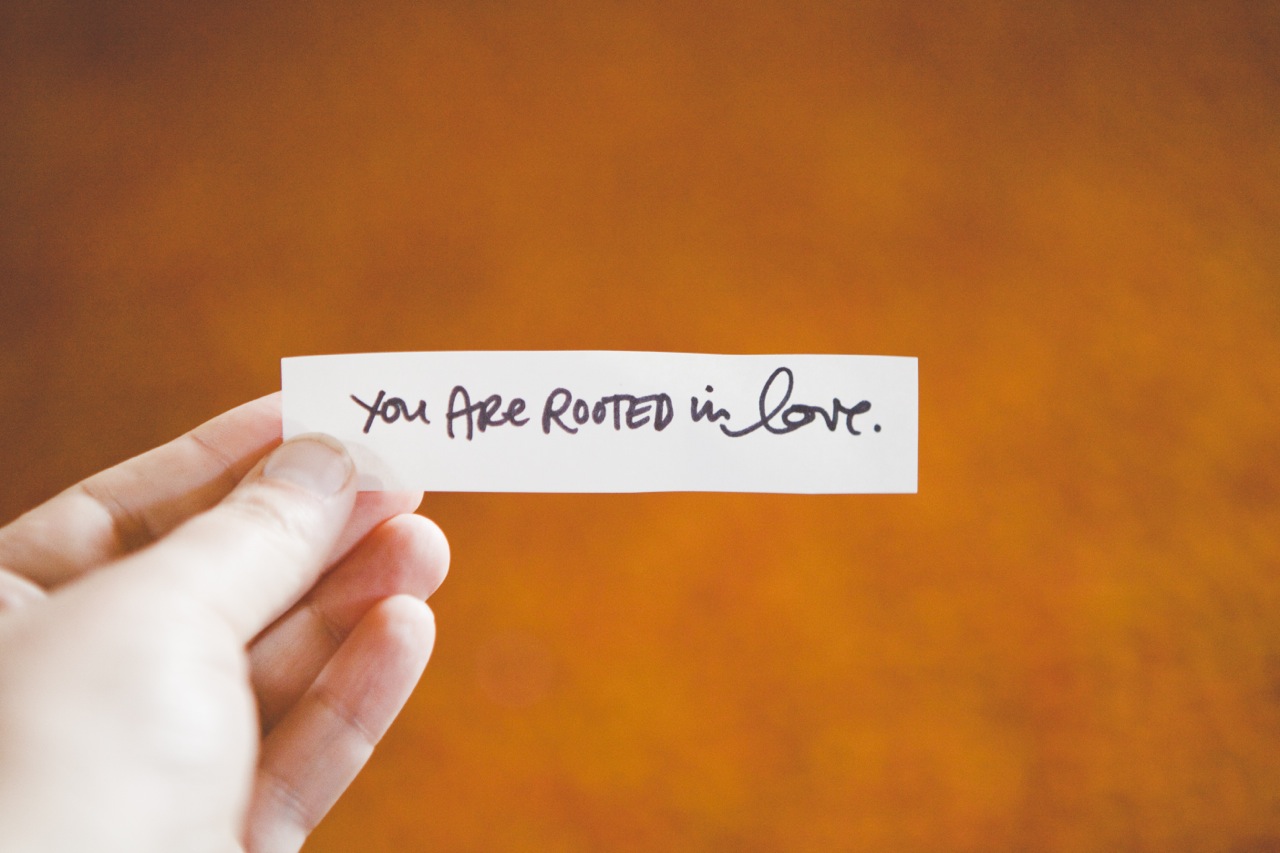 You ARe ROOTED in love.